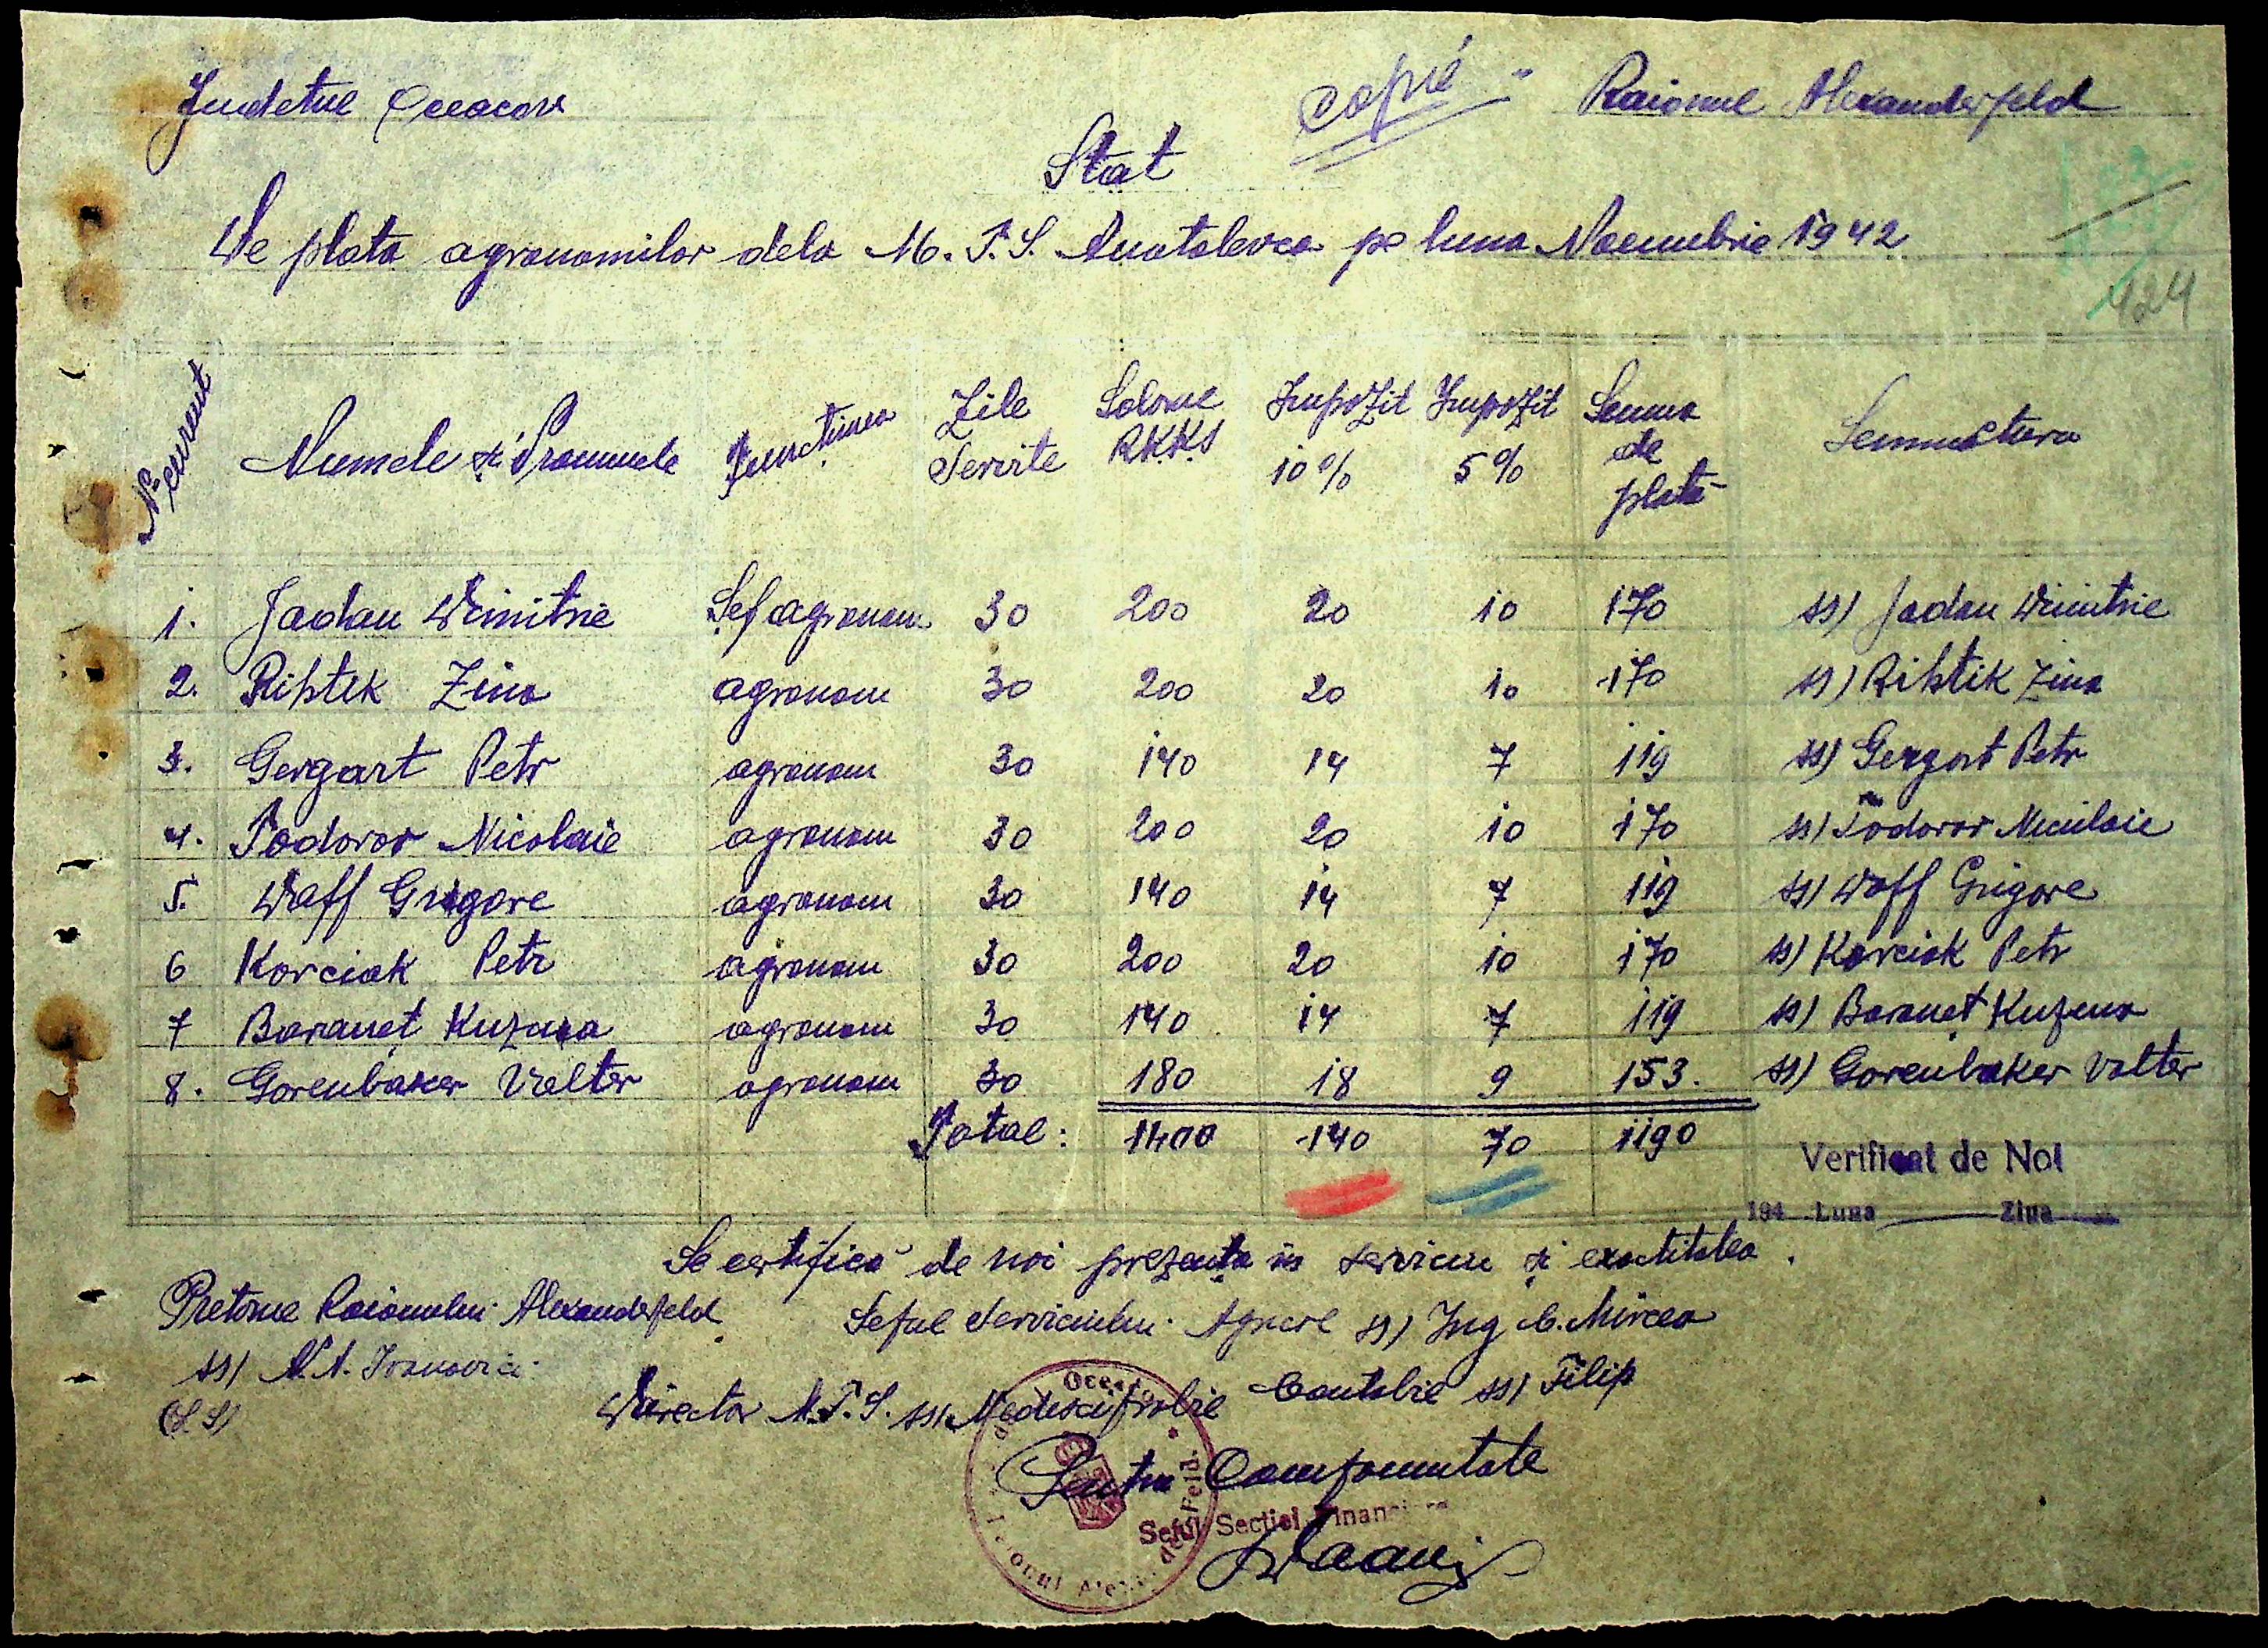 Judetul Oceacov
copie
Raionul Alexanderfeld
Stat
De plata agronomilor dela M.T.S. Anatolevca pe luna Noembrie 1942
424
No curent Numele si Pronumele Functiunea Zile Servite Solarul RKKS Impozit 10% Impozit 5% Suma de plată Semnactura
1. Jadan Dimitrie Șef agronom 30 200 20 10 170 ss) Jadan Dimitrie
2. Rihtik Zina agronom 30 200 20 10 170 ss) Rihtik Zina
3. Gergart Petr agronom 30 140 14 7 119 ss) Gergart Petr
4. Todorov Nicolaie agronom 30 200 20 10 170 ss) Todorov Niculaie
5. Woff Grigore agronom 30 140 14 7 119 ss) Woff Grigore
6 Korciak Petr agronom 30 200 20 10 170 ss) Korciak Petr
7 Baraneț Kuzma agronom 30 140 14 7 119 ss) Baraneț Kuzma
8. Gorenbaker Valter agronom 30 180 18 9 153. ss) Gorenbaker Valter
Total: 1400 140 70 1190
Verificat de Noi
194 Luna Ziua
Se certifică de noi prezența în serviciu și exactitatea.
Pretorul Raionului Alexanderfeld Șeful Serviciului Agricol ss) Ing C. Mircea
ss) Ivanovici
(LS) Director M.T.S. ss) Contabil ss) Filip
Pentru Comformitate
Seful Secției Financiare